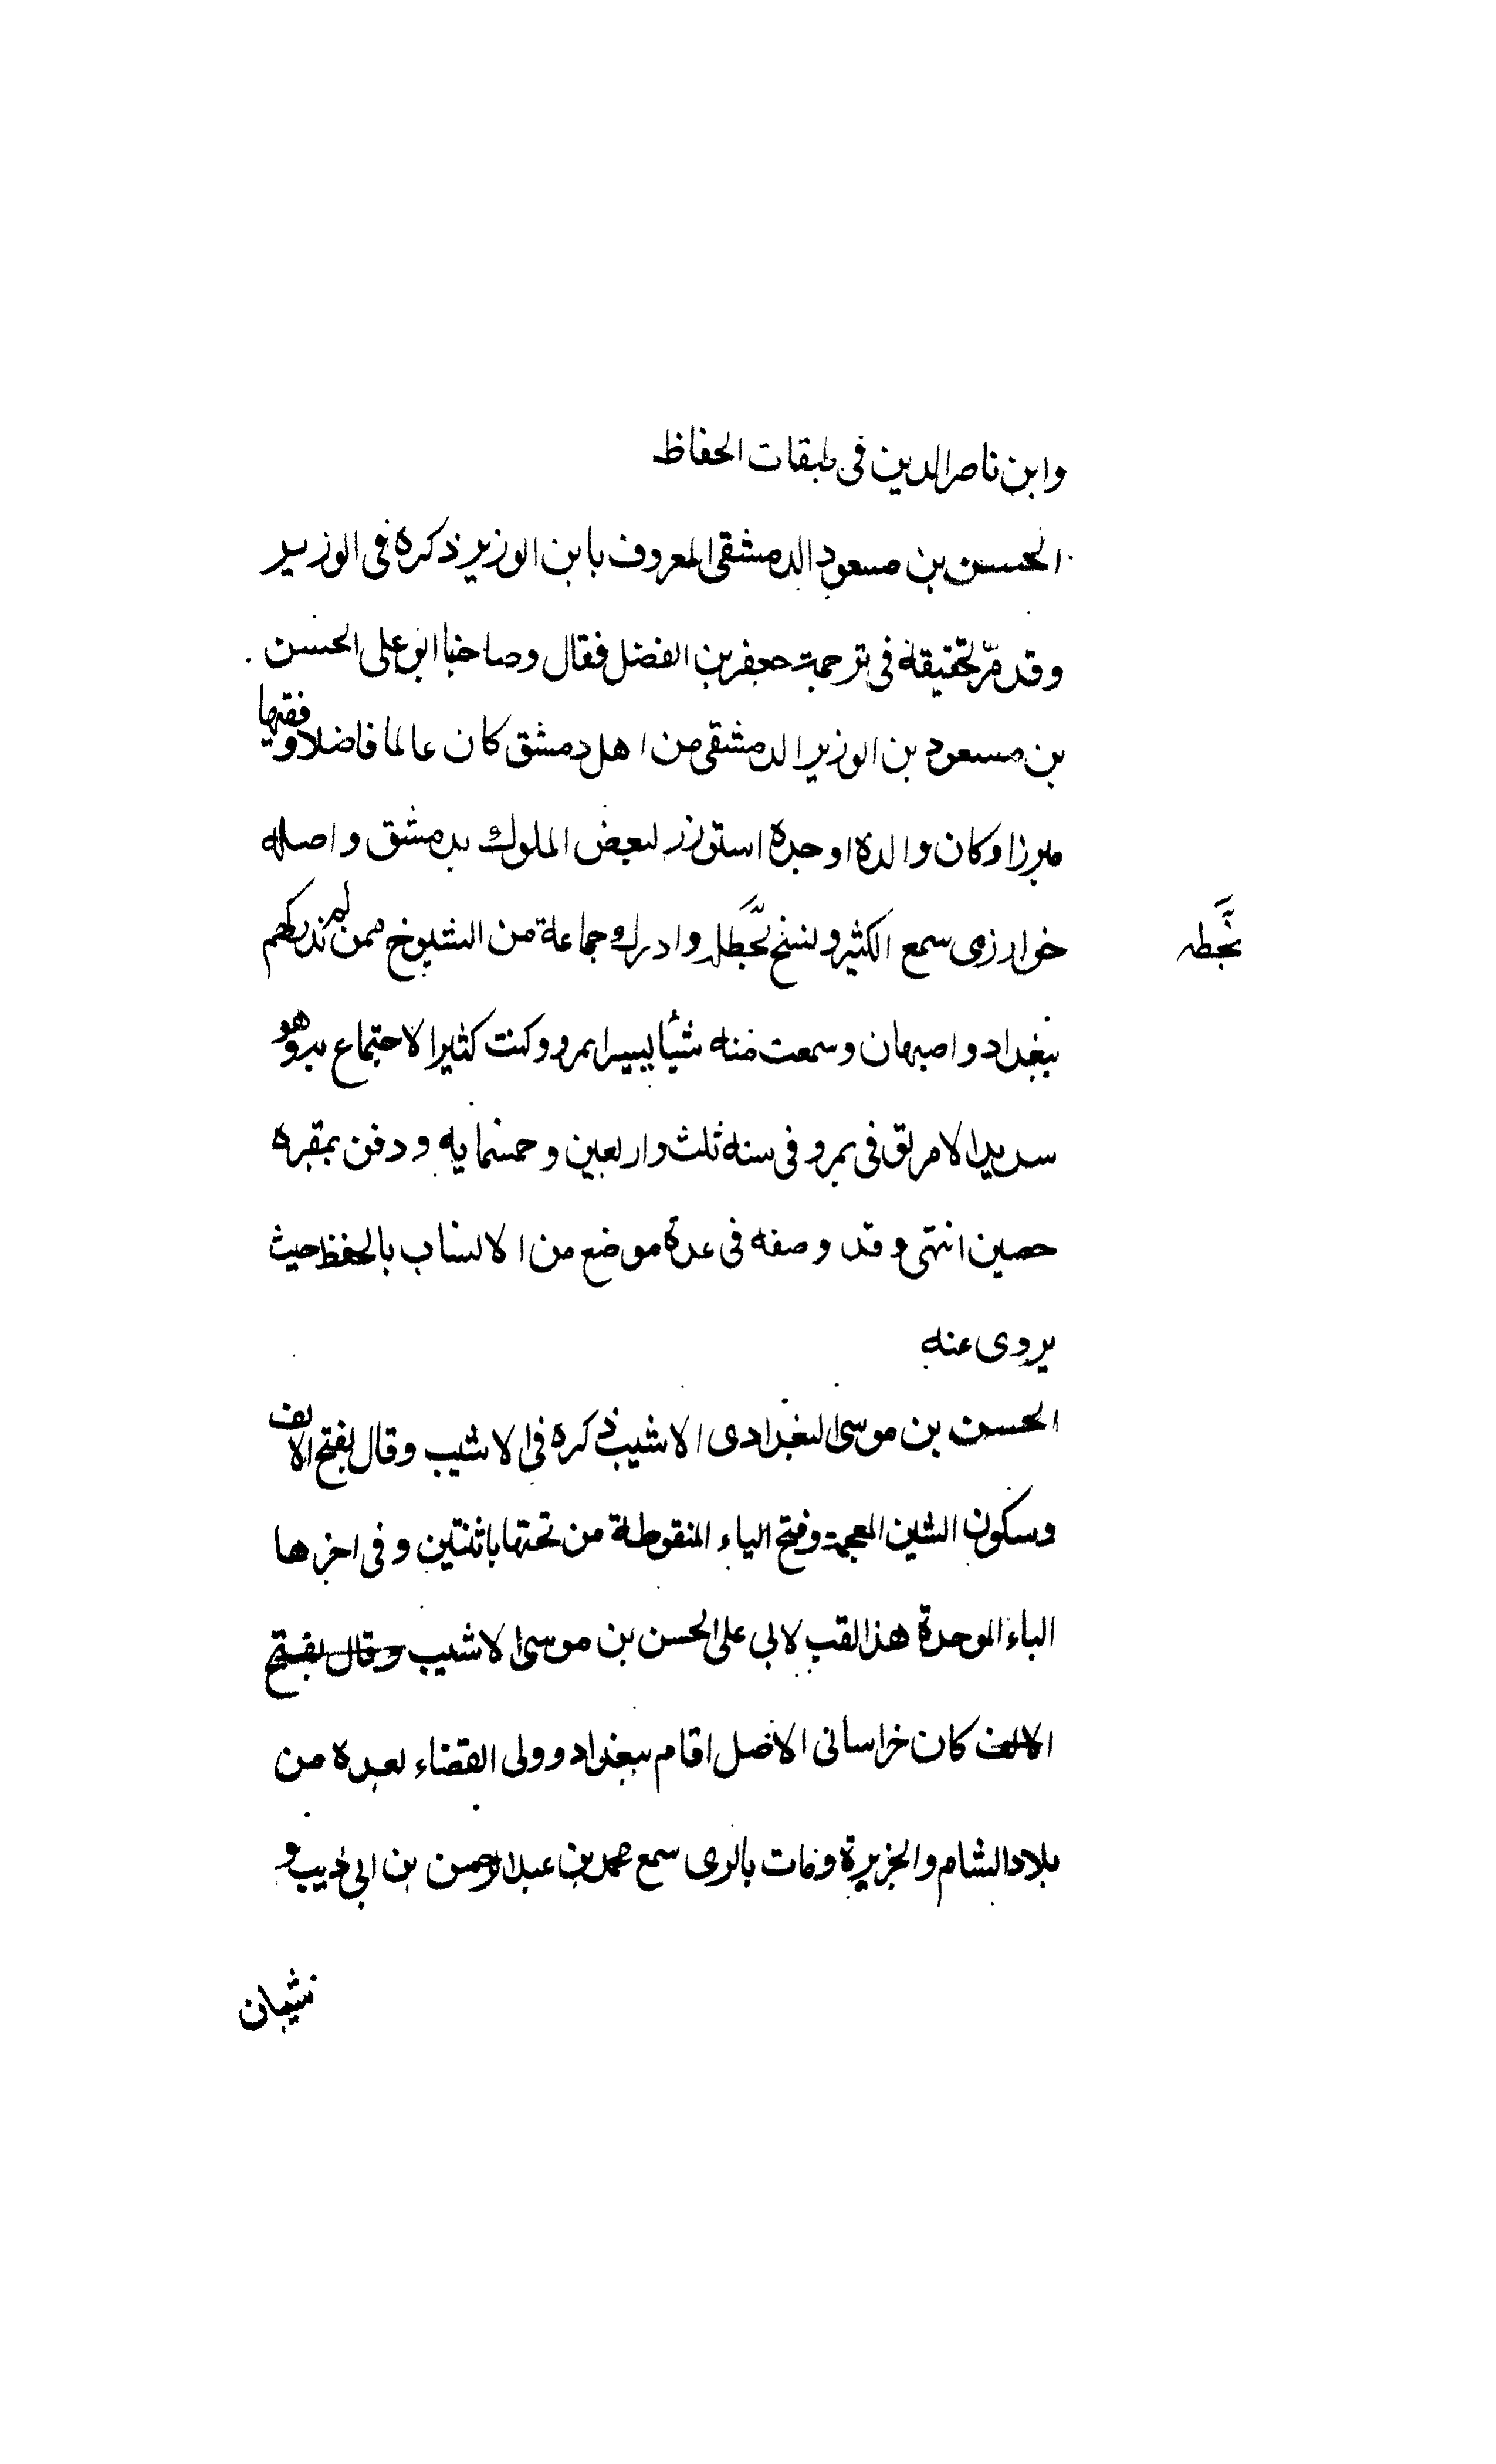 وابن ناصر الدين في طبقات الحفاظ
الحسن بن مسعود الدمشقى المعروف بابن الوزير ذكره فى الوزير
وقد مرّ تحقيقه فى ترجمة جعفر بن الفضل فقال وصاحبنا ابو على الحسن
بن مسعود بن الوزير الدمشقى من اهل دمشق كان عالما فاضلا وفقيها
مبرزا وكان والده او جده استوزر لبعض الملوك بدمشق واصله
خوارزمى سمع الكثير ونسخ بخطه وادرك جماعة من الشيوخ ممن لم ندركهم
بخطه
ببغداد واصبهان وسمعت منه شيأ يسيرا بمرو وكنت كثير الاجتماع به وهو
سديد الامر توفى بمرو فى سنه ثلث واربعين وخمسمايه ودفن بمقبره
حصين انتهى وقد وصفه فى عدة موضع من الانساب بالحفظ حيث
يروى عنه
الحسن بن موسى البغدادى الاشيب ذكره فى الاشيب وقال بفتح الالف
وسكون الشين المعجمة وفتح الياء المنقوطة من تحتها باثنتين وفى اخرها
الباء الموحدة هذا لقب لابى على الحسن بن موسى الاشيب وقال بفتح
الالف كان خراسانى الاصل اقام ببغداد وولى القضاء لعده من
بلاد الشام والجزيرة ومات بالرى سمع محمد بن عبد الرحمن بن ابى ذيب و
شيبان